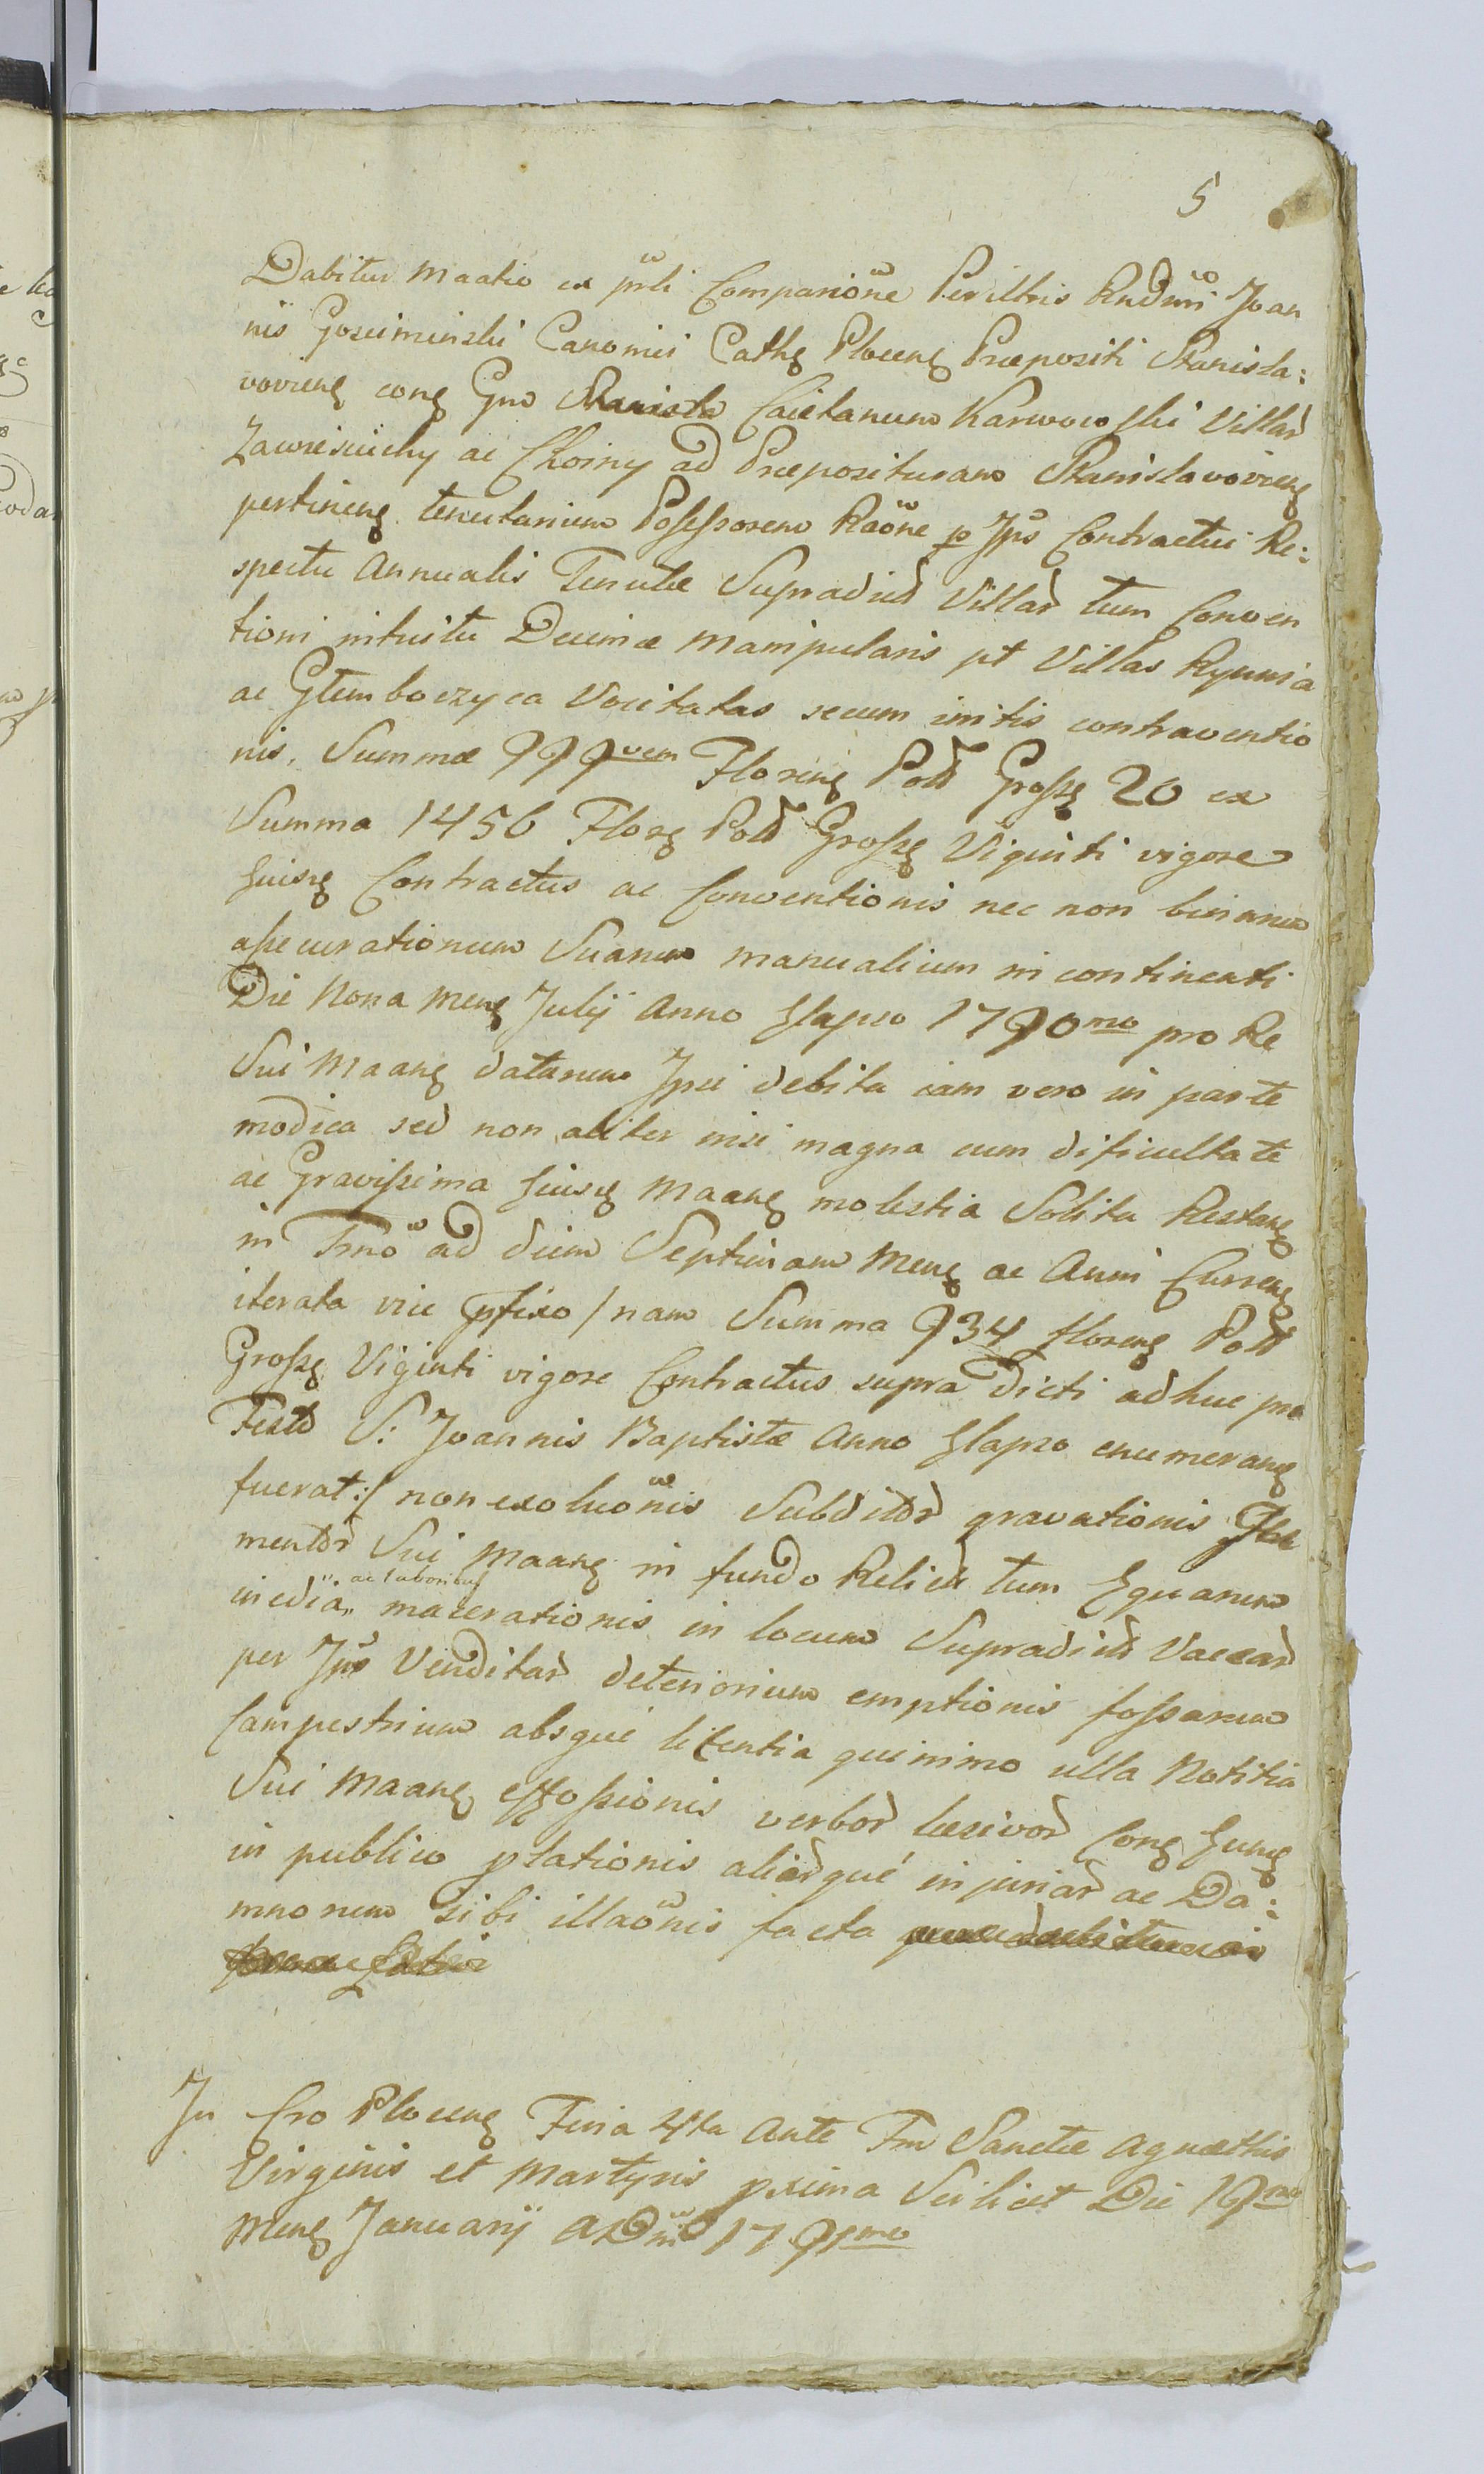 5
Dabitur Maatio ex pnti Comparitione Perilltris Rndmi Joan
nis Gosciminski Canonici Cathg Ploceng Præpositi Stanisla:
voviens cong Gno Caietanum Karwowski Villar
ac Choiny ad Præposituram Stanislavoviens
pertineng tenutarium Possessorem Raone p Jps Contractui Re:
spectu Annualis Tenutæ Supradict Villar tum Conven
tioni intuitu Decimæ Manipularis pt Villas Rycmia
ac Głemboczyca Vocitatas secum initis contraventio
nis. Summæ 999vem Floreng Poll Grosg 20 ex
Summa 1456 Florg Poll Grossg Viginti vigore
hujsg Contractus ac Conventionis nec non binarum
assecurationum Suarum manualium in continenti
Die Nona Meng Julij Anno Elapso 1790mo pro Re
Sui Maang datarum Jpsi debita iam vero in parte
modica sed non aliter nisi magna cum dificultate
ac Gravissima hujsg Maang molestia Solita Restang
in Tmo ad diem Septimam Meng ac Anni Curreng
iterata vice pfixo / nam Summa 934 floreng Poll
Grosg Viginti vigore Contractus supra dicti adhuc pro
Festo S: Joannis Baptistæ Anno Elapso enumerang
fuerat :/ non exoluonis Subditor gravationis
mentor Sui Maang in fundo Relict tum Equarum
inedia ac laboribus macerationis in locum Supradict Vaccar
per Jps Venditar deteriorum emptionis fossarum
Campestrium absque licentia quinimo ulla Notitia
Sui Maang effossionis verbor læsivor Cong
in publico plationis aliarqué injuriar ac Da:
mnorum sibi illaonis facta

In Cro Ploceng Feria 4ta Ante Fm Sanctæ Agnæthis
Virginis et Martyris pxima Scilicet Die 19na
Meng Januarij A Dni 1791mo